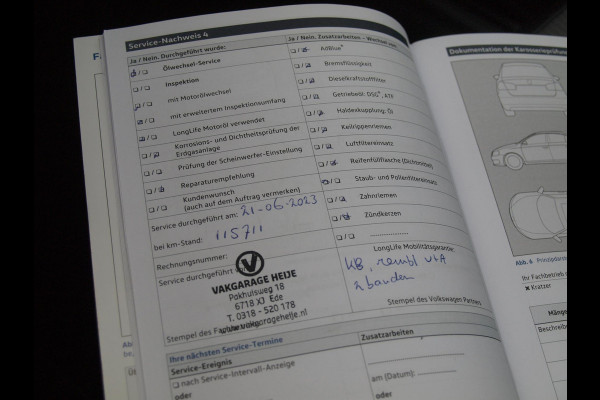 Service-Nachweis 4
Ja / Nein. Durchgeführt wurde:
Ölwechsel-Service
Inspektion
mit Motorölwechsel
mit erweitertem Inspektionsumfang
LongLife Motoröl verwendet
Korrosions- und Dichtheitsprüfung der
Erdgasanlage
Prüfung der Scheinwerfer-Einstellung
Reparaturempfehlung
Kundenwunsch
(auch auf dem Auftrag vermerken)
Service durchgeführt am: 21-06-2023
bei km-Stand: 115711
Rechnungsnummer:
Service durchgeführt
VAKGARAGE HEIJE
Pakhuisweg 18
6718 XJ Ede
T. 0318 - 520 178
www.vakgarageheije.nl
Stempel des
Ja / Nein. Zusatzarbeiten - Wechsel von:
AdBlue®
Bremsflüssigkeit
Dieselkraftstofffilter
Getriebeöl: DSG®, ATF
Haldexkupplung: Öl
Keilrippenriemen
Luftfiltereinsatz
Reifenfüllflasche (Dichtmittel)
Staub- und Pollenfiltereinsatz
Zahnriemen
Zündkerzen
LongLife Mobilitätsgarantie:
2 banden
Stempel des Volkswagen Partners
Ihre nächsten Service-Termine
Service-Ereignis
nach Service-Intervall-Anzeige
oder
Zusatzarbeiten
am (Datum):
oder
Dokumentation der Karosserieprüfung
Abb. 6 Prinzipdarstellung
Ihr Fachbetrieb
Kratzer
Mängel